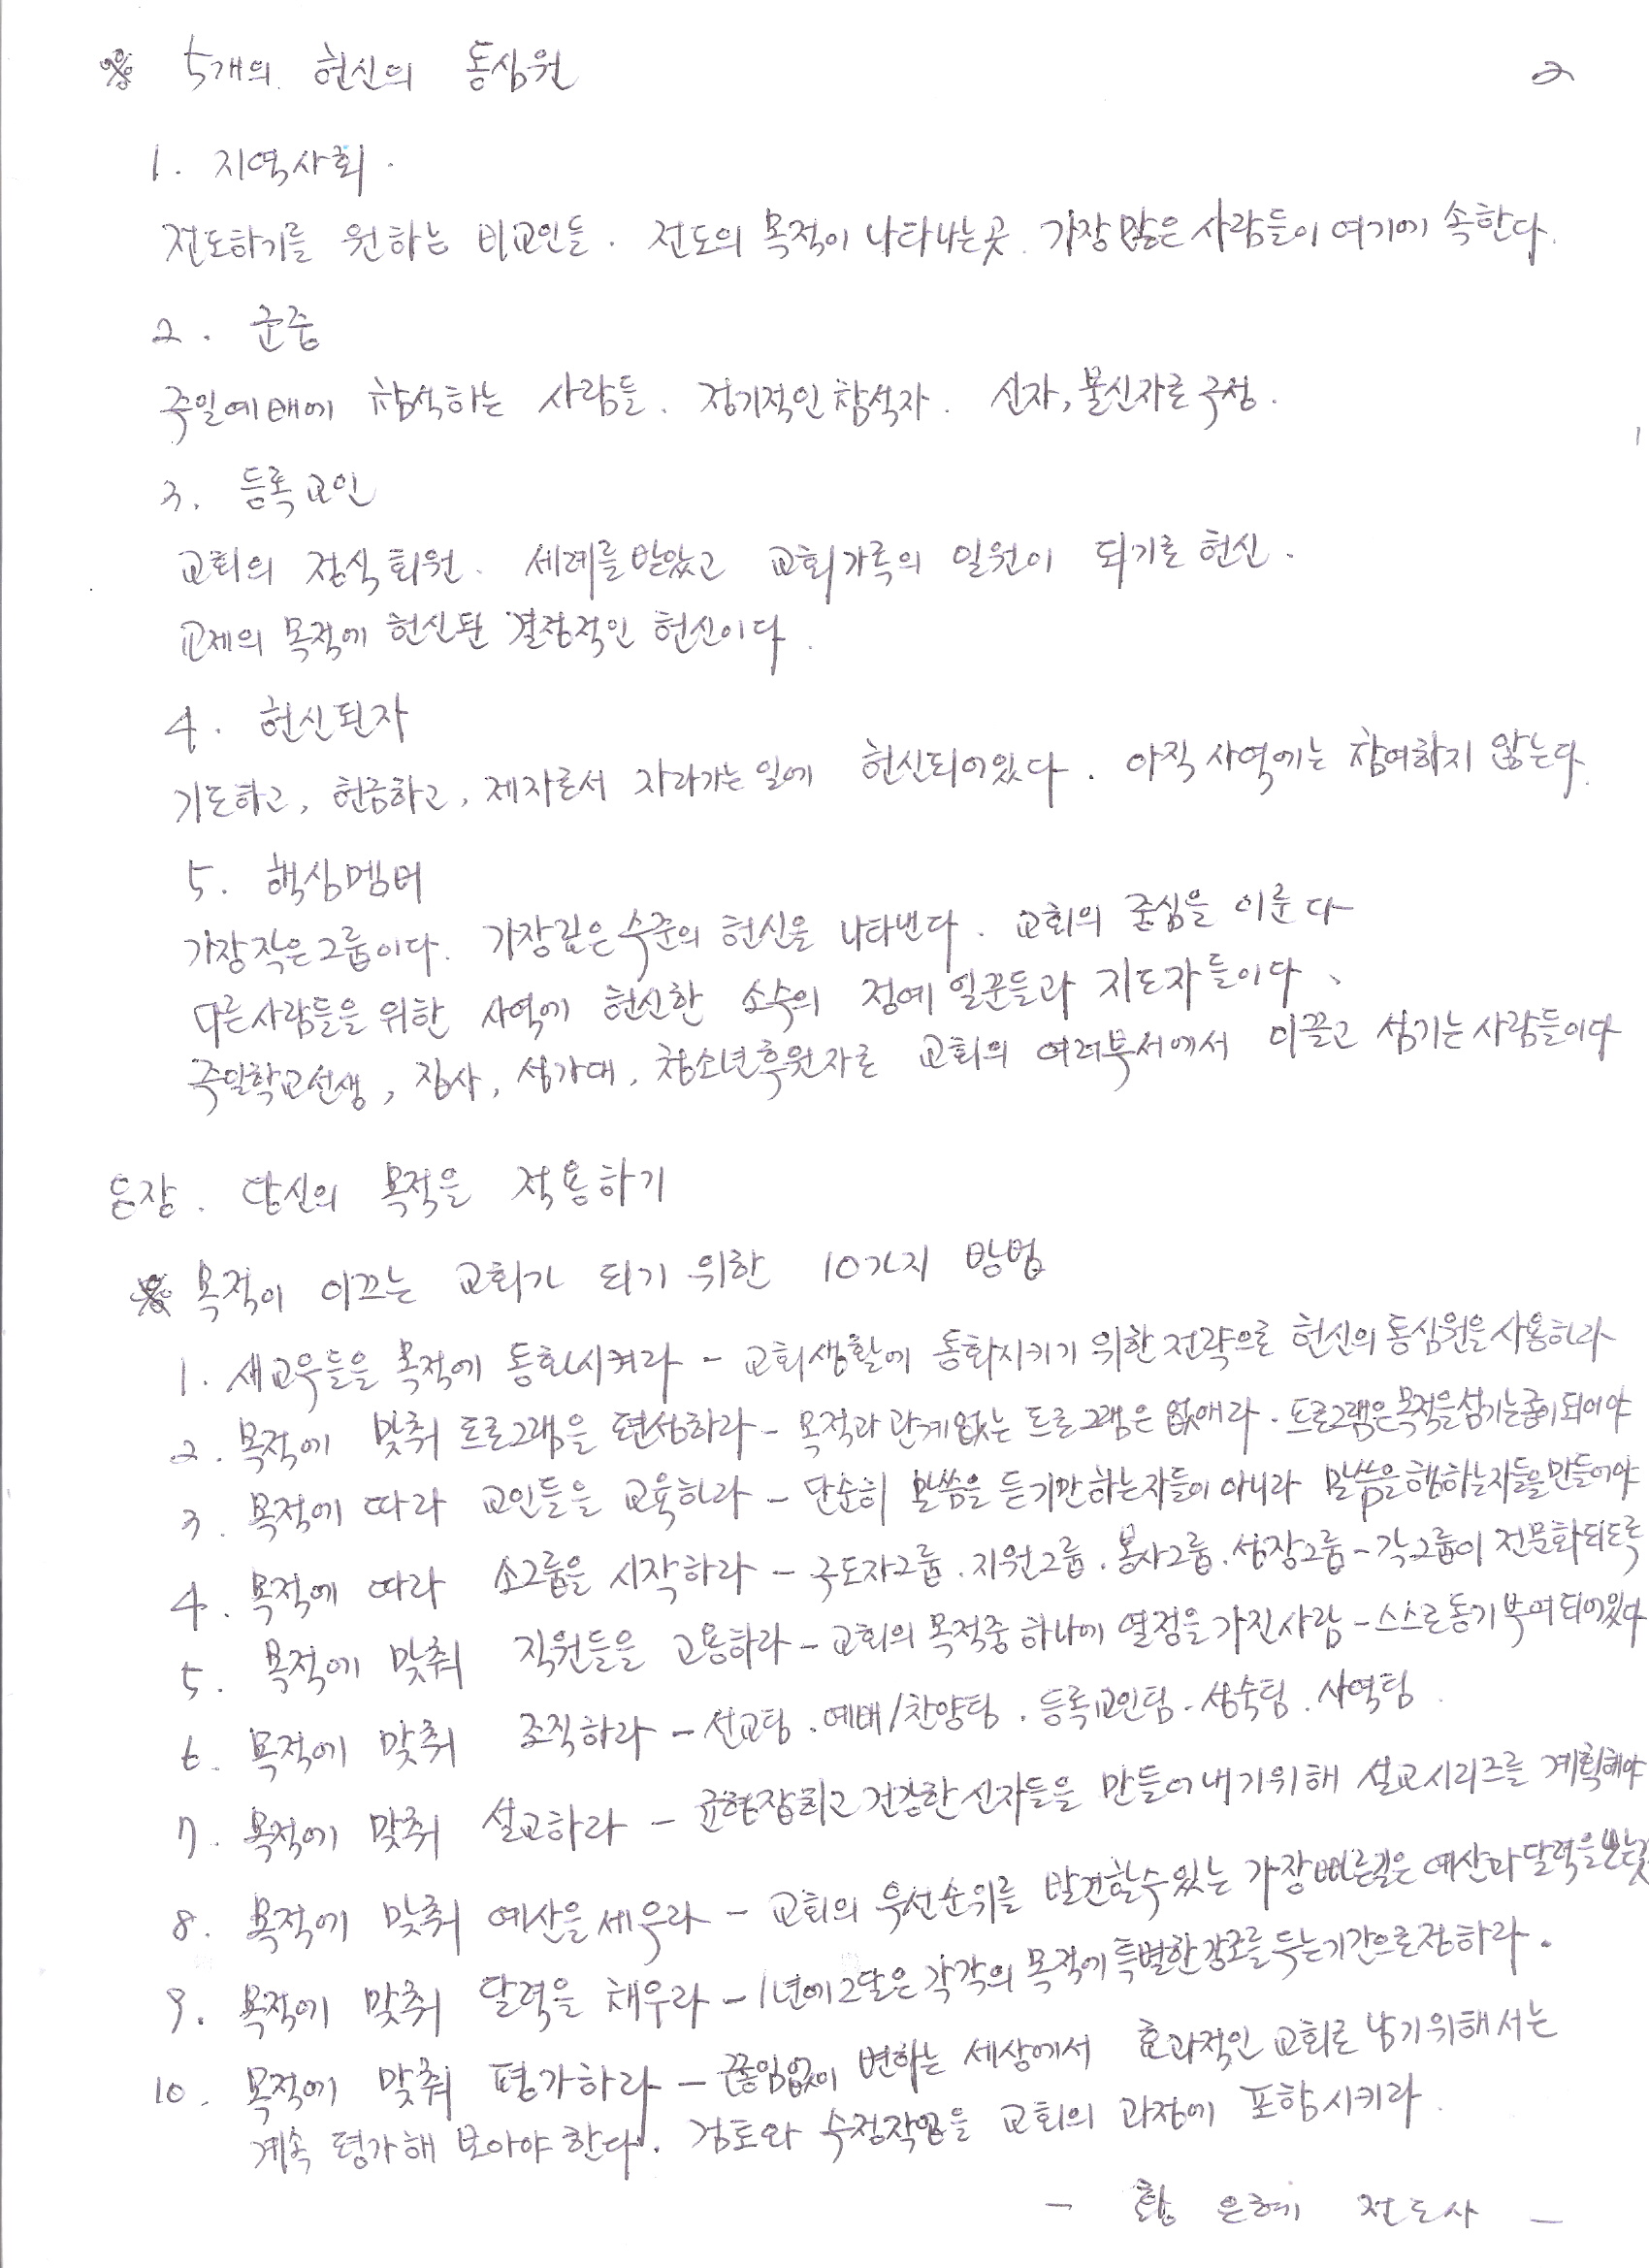 ※ 5개의 헌신의 동심원 2
1. 지역사회.
전도하기를 원하는 비교인들. 전도의 목적이 나타나는곳. 가장 많은 사람들이 여기에 속한다.
2. 군중
주일예배에 참석하는 사람들. 정기적인 참석자. 신자, 불신자로 구성.
3. 등록교인
교회의 정식회원. 세례를 받았고 교회가족의 일원이 되기로 헌신.
교제의 목적에 헌신된 결정적인 헌신이다.
4. 헌신된자
기도하고, 헌금하고, 제자로서 자라가는 일에 헌신되어있다. 아직 사역에는 참여하지 않는다.
5. 핵심멤버
가장작은그룹이다. 가장깊은 수준의 헌신을 나타낸다. 교회의 중심을 이룬다
다른사람들을 위한 사역에 헌신한 소수의 정예 일꾼들과 지도자들이다.
주일학교선생, 집사, 성가대, 청소년후원자로 교회의 여러부서에서 이끌고 섬기는 사람들이다
장. 당신의 목적을 적용하기
※ 목적이 이끄는 교회가 되기 위한 10가지 방법
1. 새교우들을 목적에 동화시켜라 - 교회생활에 동화시키기 위한 전략으로 헌신의 동심원을 사용하라
2. 목적에 맞춰 프로그램을 편성하라 - 목적과 관계없는 프로그램은 없애라. 프로그램은 목적을 섬기는 종이되어야
3. 목적에 따라 교인들을 교육하라 - 단순히 말씀을 듣기만하는자들이 아니라 말씀을 행하는자들을 만들어야
4. 목적에 따라 소그룹을 시작하라 - 구도자그룹. 지원그룹. 봉사그룹. 성장그룹 - 각그룹이 전문화되도록
5. 목적에 맞춰 직원들을 고용하라 - 교회의 목적중 하나에 열정을 가진사람 - 스스로 동기부여 되어있다
6. 목적에 맞춰 조직하라 - 선교팀. 예배/찬양팀. 등록교인팀 - 성숙팀. 사역팀.
7. 목적에 맞춰 설교하라 - 균형잡히고 건강한 신자들을 만들어내기위해 설교시리즈를 계획해야
8. 목적에 맞춰 예산을 세우라 - 교회의 우선순위를 발견할수있는 가장 빠른길은 예산과 달력을
9. 목적에 맞춰 달력을 채우라 - 1년에 2달은 각각의 목적에 특별한 강조를 두는기간으로 정하라.
10. 목적에 맞춰 평가하라 - 끊임없이 변하는 세상에서 효과적인 교회로 남기위해서는
계속 평가해 보아야 한다. 검토와 수정작업을 교회의 과정에 포함시키라.
- 황 은혜 전도사 -